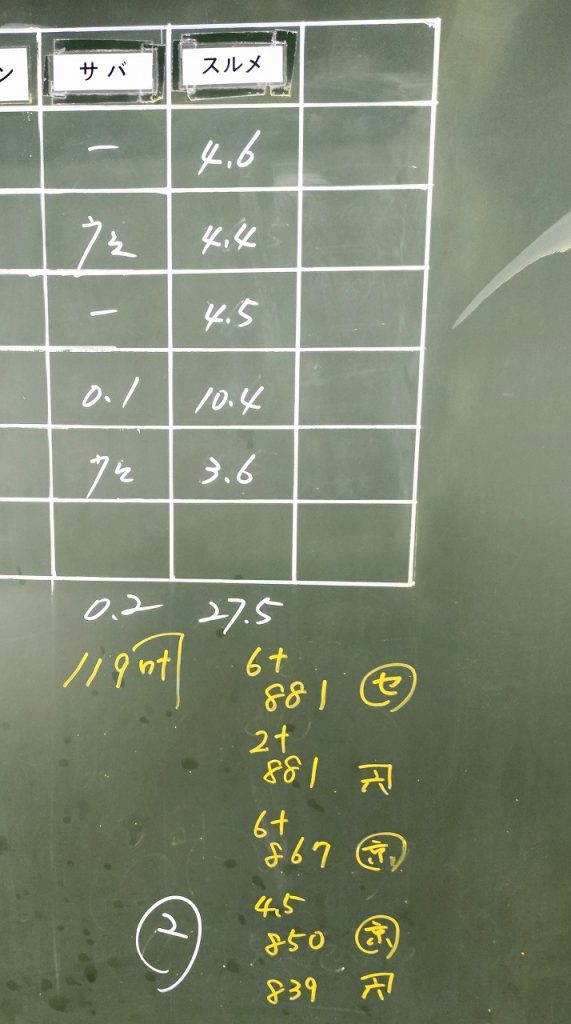 ン サバ スルメ
ー 4.6
ウス 4.4
ー 4.5
0.1 10.4
ウス 3.6
0.2 27.5
119
6t
881 セ
2t
881
6t
867 京
4.5
850 京
839
2